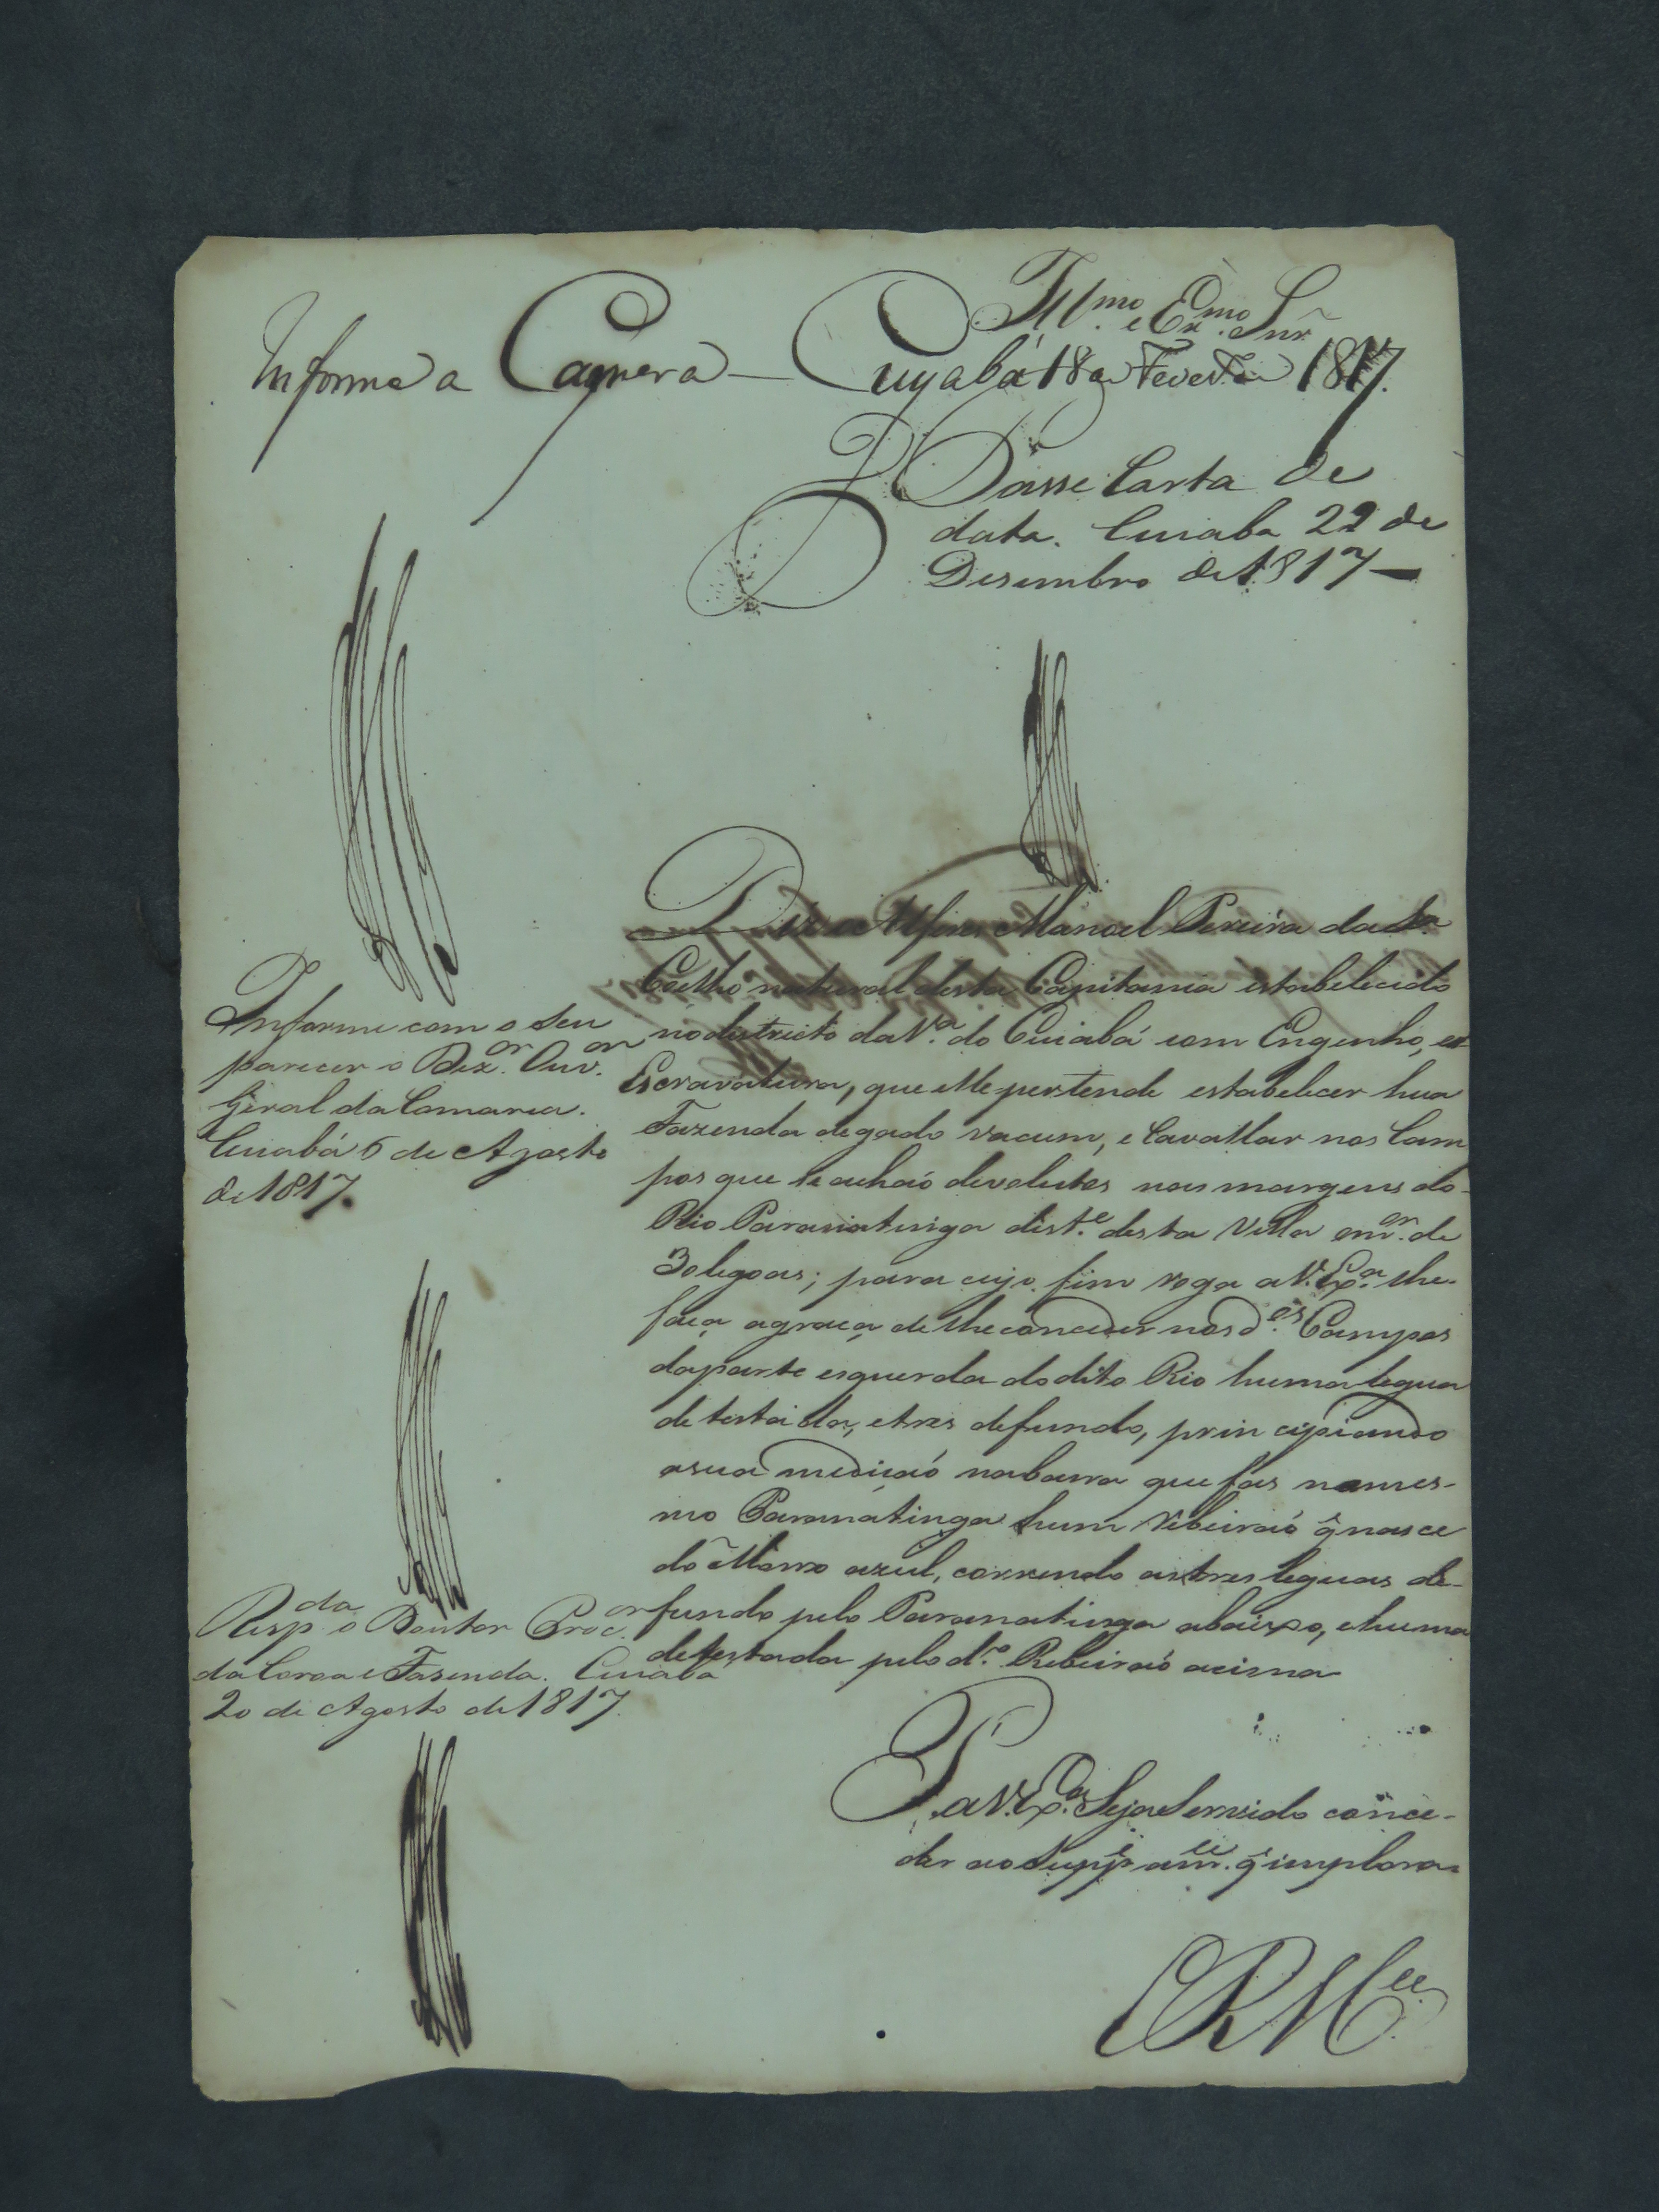 Ill.mo e Ex.mo Snr.
Informe a Camera — Cuyabá 18 de Fever.o de 1817.
Passe Carta de
data. Cuiaba 22 de
Desembro de 1817 —
Diz o Alferes Manoel Pereira da S.a
Coelho natural desta Capitania estabelecido
no destricto da V.a do Cuiabá com Engenho, e
Escravatura, que elle pertende estabelecer hua
Fazenda de gado vacum, e Cavallar nos Cam
pos que se achaó devolutos nas margens do
Rio Paranatinga dist.e desta Villa
30 legoas; para cujo fim roga a V. Ex.a lhe
faça a graça de lhe conceder nos d.os Campos
da parte esquerda do dito Rio huma legua
de testada, e tres de fundo, principiando
a sua mediçaó na barra que fas no mes-
mo Paranátinga hum Ribeiraó q̃ nasce
do Morro azul, correndo as tres leguas de
fundo pelo Paranatinga abaixo, e huma
de testada pelo d.o Ribeiraó acima
Informe com o seu
parecer o Dez.or Ouv.or
Geral da Comarca.
Cuiabá 6 de Agosto
de 1817.
Resp.da o Doutor Proc.or
da Coroa e Fazenda. Cuiabá
20 de Agosto de 1817.
P. a V. Ex.a Seja Servido conce-
der ao Supp.e a m.ce q̃ implora
E R M.ce